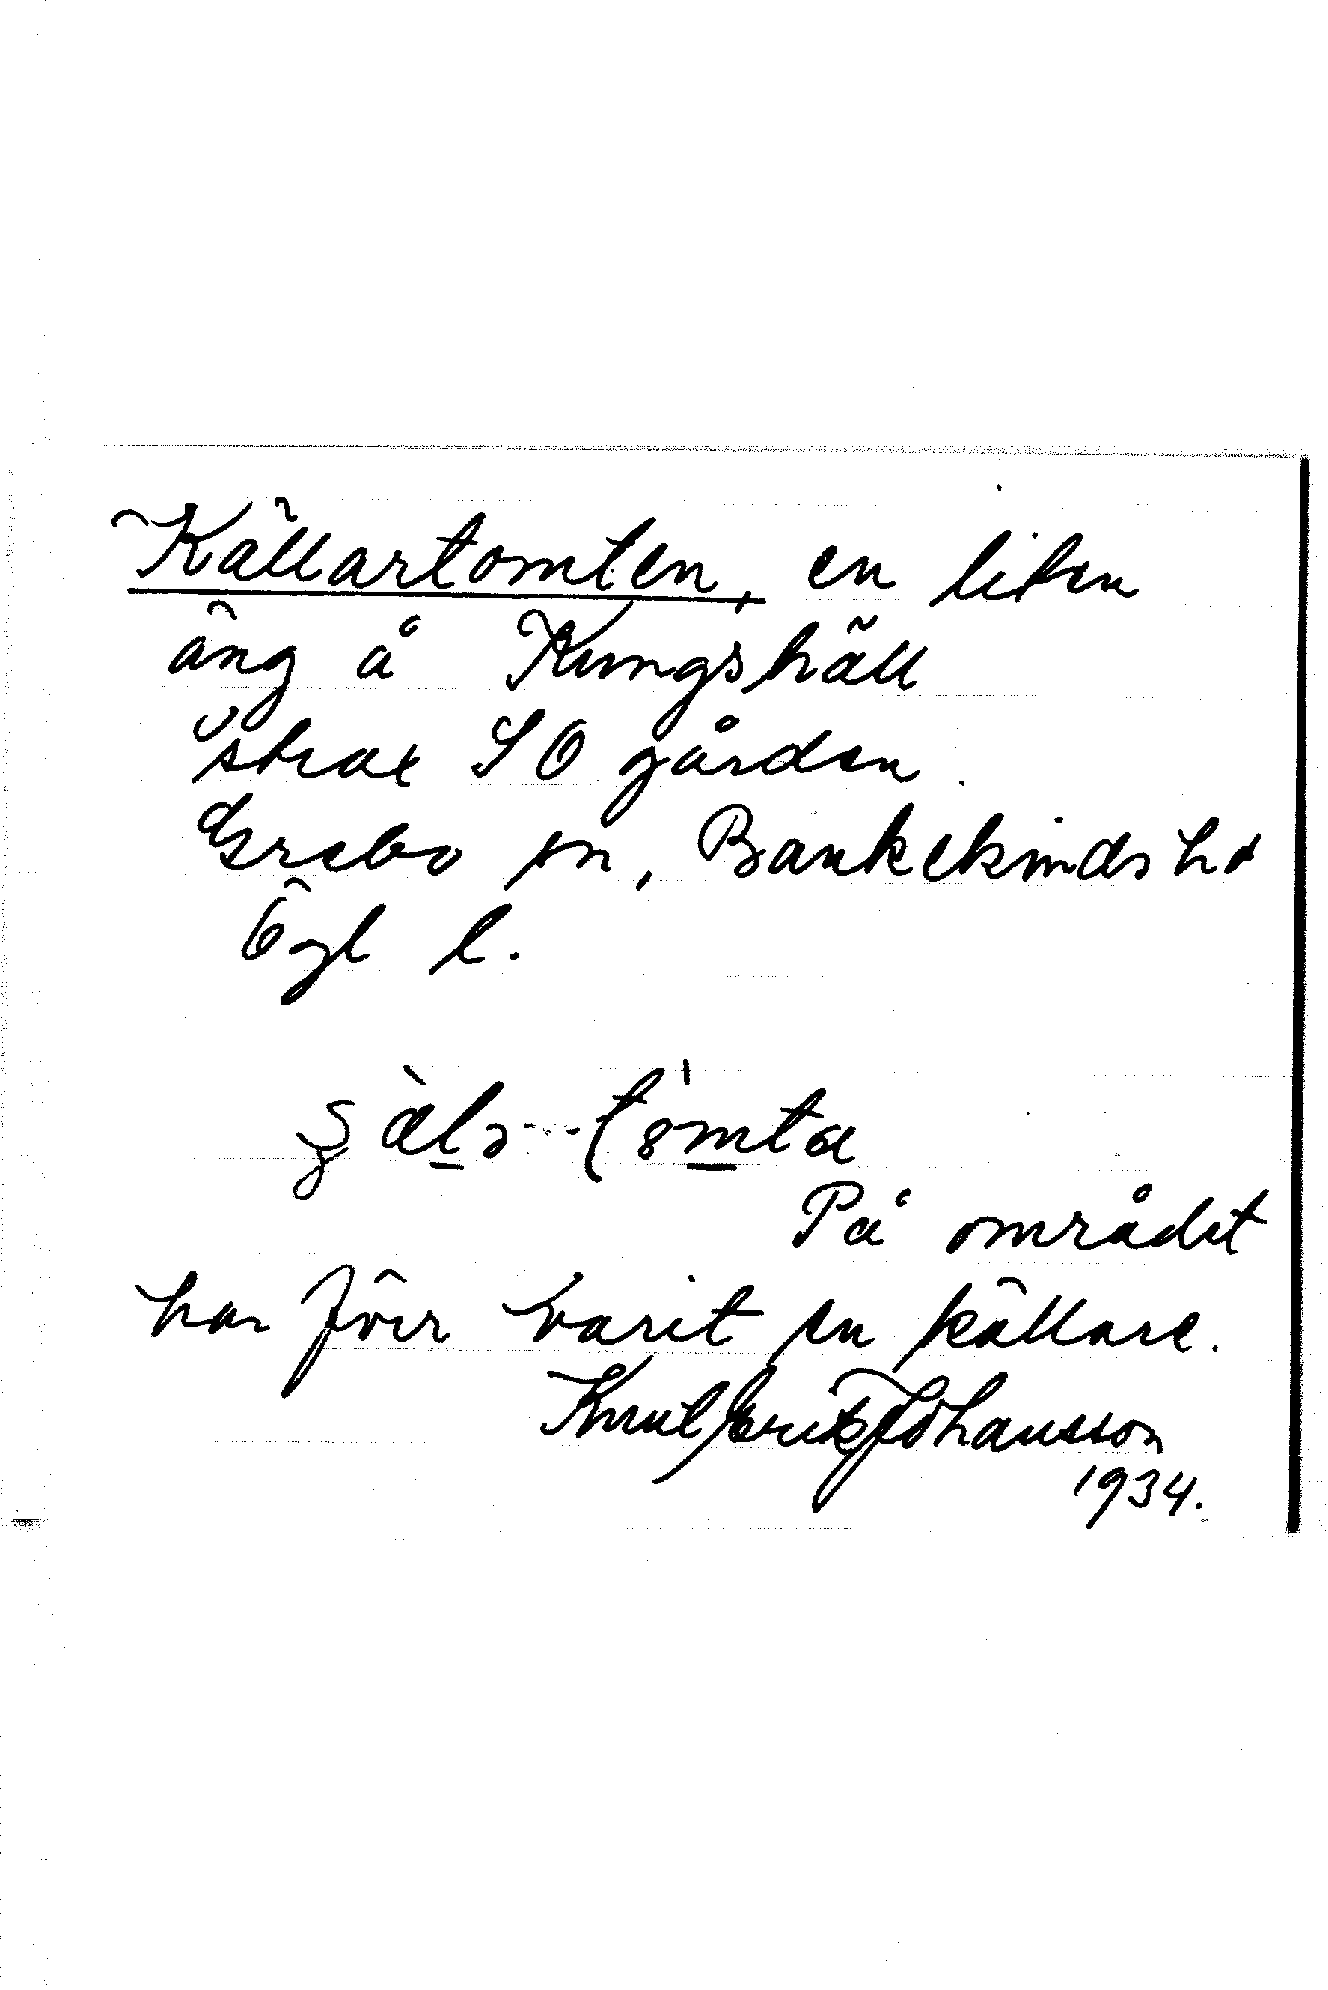 Källartomten, en liten
äng å Kungshäll
strax SO gården
Grebo sn, Bankekinds hd
Ögl l.
På området
har förr varit en källare.
Knut Erik Johansson
1934.